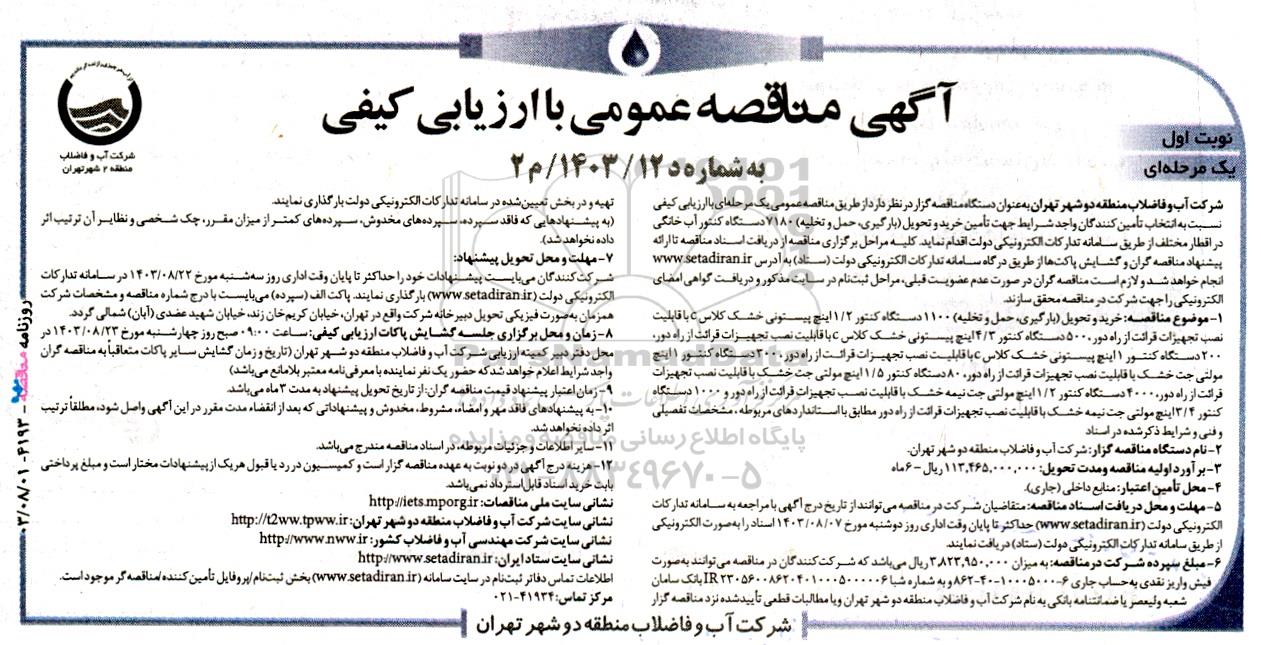 آگهی مناقصه عمومی با ارزیابی کیفی
به شماره د۱۲/ ۱۴۰۳/ م۲
نوبت اول
یک مرحله‌ای
شرکت آب و فاضلاب
منطقه ۲ شهر تهران
شرکت آب و فاضلاب منطقه دو شهر تهران به عنوان دستگاه مناقصه گزار در نظر دارد از طریق مناقصه عمومی یک مرحله‌ای با ارزیابی کیفی
نسبت به انتخاب تأمین کنندگان واجد شرایط جهت تأمین خرید و تحویل (بارگیری، حمل و تخلیه) ۷۱۸۰ دستگاه کنتور آب خانگی
در اقطار مختلف از طریق سامانه تدارکات الکترونیکی دولت اقدام نماید. کلیه مراحل برگزاری مناقصه از دریافت اسناد مناقصه تا ارائه
پیشنهاد مناقصه گران و گشایش پاکت‌ها از طریق درگاه سامانه تدارکات الکترونیکی دولت (ستاد) به آدرس www.setadiran.ir
انجام خواهد شد و لازم است مناقصه گران در صورت عدم عضویت قبلی، مراحل ثبت‌نام در سایت مذکور و دریافت گواهی امضای
الکترونیکی را جهت شرکت در مناقصه محقق سازند.
۱-موضوع مناقصه: خرید و تحویل (بارگیری، حمل و تخلیه) ۱۱۰۰ دستگاه کنتور ۱/۲ اینچ پیستونی خشک کلاس c با قابلیت
نصب تجهیزات قرائت از راه دور، ۵۰۰ دستگاه کنتور ۳/۴ اینچ پیستونی خشک کلاس c با قابلیت نصب تجهیزات قرائت از راه دور،
۲۰۰ دستگاه کنتور ۱ اینچ پیستونی خشک کلاس c با قابلیت نصب تجهیزات قرائت از راه دور، ۳۰۰ دستگاه کنتور ۱ اینچ
مولتی جت خشک با قابلیت نصب تجهیزات قرائت از راه دور، ۸۰ دستگاه کنتور ۱/۵ اینچ مولتی جت خشک با قابلیت نصب تجهیزات
قرائت از راه دور، ۴۰۰۰ دستگاه کنتور ۱/۲ اینچ مولتی جت نیمه خشک با قابلیت نصب تجهیزات قرائت از راه دور و ۱۰۰۰ دستگاه
کنتور ۳/۴ اینچ مولتی جت نیمه خشک با قابلیت نصب تجهیزات قرائت از راه دور مطابق با استانداردهای مربوطه، مشخصات تفصیلی
و فنی و شرایط ذکر شده در اسناد
۲-نام دستگاه مناقصه گزار: شرکت آب و فاضلاب منطقه دو شهر تهران.
۳-برآورد اولیه مناقصه و مدت تحویل: ۱۱۳,۴۶۵,۰۰۰,۰۰۰ ریال - ۶ ماه
۴-محل تأمین اعتبار: منابع داخلی (جاری).
۵-مهلت و محل دریافت اسناد مناقصه: متقاضیان شرکت در مناقصه می‌توانند از تاریخ درج آگهی با مراجعه به سامانه تدارکات
الکترونیکی دولت (www.setadiran.ir) حداکثر تا پایان وقت اداری روز دوشنبه مورخ ۱۴۰۳/۰۸/۰۷ اسناد را به صورت الکترونیکی
از طریق سامانه تدارکات الکترونیکی دولت (ستاد) دریافت نمایند.
۶-مبلغ سپرده شرکت در مناقصه: به میزان ۳,۸۲۳,۹۵۰,۰۰۰ ریال می‌باشد که شرکت کنندگان در مناقصه می‌توانند به صورت
فیش واریز نقدی به حساب جاری ۶-۱۰۰۰۵۰۰۰-۴۰-۸۶۲ و به شماره شبا IR ۲۳۰۵۶۰۰۸۶۲۰۴۰۱۰۰۰۵۰۰۰۰۰۶ بانک سامان
شعبه ولیعصر یا ضمانتنامه بانکی به نام شرکت آب و فاضلاب منطقه دو شهر تهران و یا مطالبات قطعی تأیید شده نزد مناقصه گزار
تهیه و در بخش تعیین‌شده در سامانه تدارکات الکترونیکی دولت بارگذاری نمایند.
(به پیشنهادهایی که فاقد سپرده، سپرده‌های مخدوش، سپرده‌های کمتر از میزان مقرر، چک شخصی و نظایر آن ترتیب اثر
داده نخواهد شد).
۷-مهلت و محل تحویل پیشنهاد:
شرکت کنندگان می‌بایست پیشنهادات خود را حداکثر تا پایان وقت اداری روز سه‌شنبه مورخ ۱۴۰۳/۰۸/۲۲ در سامانه تدارکات
الکترونیکی دولت (www.setadiran.ir) بارگذاری نمایند. پاکت الف (سپرده) می‌بایست با درج شماره مناقصه و مشخصات شرکت
همزمان به‌صورت فیزیکی تحویل دبیرخانه شرکت واقع در تهران، خیابان کریم‌خان زند، خیابان شهید عضدی (آبان) شمالی گردد.
۸-زمان و محل برگزاری جلسه گشایش پاکات ارزیابی کیفی: ساعت ۰۹:۰۰ صبح روز چهارشنبه مورخ ۱۴۰۳/۰۸/۲۳ در
محل دفتر دبیر کمیته ارزیابی شرکت آب و فاضلاب منطقه دو شهر تهران (تاریخ و زمان گشایش سایر پاکات متعاقباً به مناقصه گران
واجد شرایط اعلام خواهد شد که حضور یک نفر نماینده با معرفی‌نامه معتبر بلامانع می‌باشد)
۹-زمان اعتبار پیشنهاد قیمت مناقصه گران: از تاریخ تحویل پیشنهاد به مدت ۳ ماه می‌باشد.
۱۰-به پیشنهادهای فاقد مهر و امضاء، مشروط، مخدوش و پیشنهاداتی که بعد از انقضاء مدت مقرر در این آگهی واصل شود، مطلقاً ترتیب
اثر داده نخواهد شد.
۱۱-سایر اطلاعات و جزئیات مربوطه، در اسناد مناقصه مندرج می‌باشد.
۱۲-هزینه درج آگهی در دو نوبت به عهده مناقصه گزار است و کمیسیون در رد یا قبول هریک از پیشنهادات مختار است و مبلغ پرداختی
بابت خرید اسناد قابل استرداد نمی‌باشد.
نشانی سایت ملی مناقصات: http://iets.mporg.ir
نشانی سایت شرکت آب و فاضلاب منطقه دو شهر تهران: http://t2ww.tpww.ir
نشانی سایت شرکت مهندسی آب و فاضلاب کشور: http://www.nww.ir
نشانی سایت ستاد ایران: http://www.setadiran.ir
اطلاعات تماس دفاتر ثبت‌نام در سایت سامانه (www.setadiran.ir) بخش ثبت‌نام/پروفایل تأمین کننده/مناقصه گر موجود است.
مرکز تماس: ۴۱۹۳۴-۰۲۱
شرکت آب و فاضلاب منطقه دو شهر تهران
روزنامه مناقصه - ۴۱۹۳ - ۰۳/۰۸/۰۱
پایگاه اطلاع رسانی مناقصه و مزایده
۰۲۱-۸۸۳۴۹۶۷۰-۵